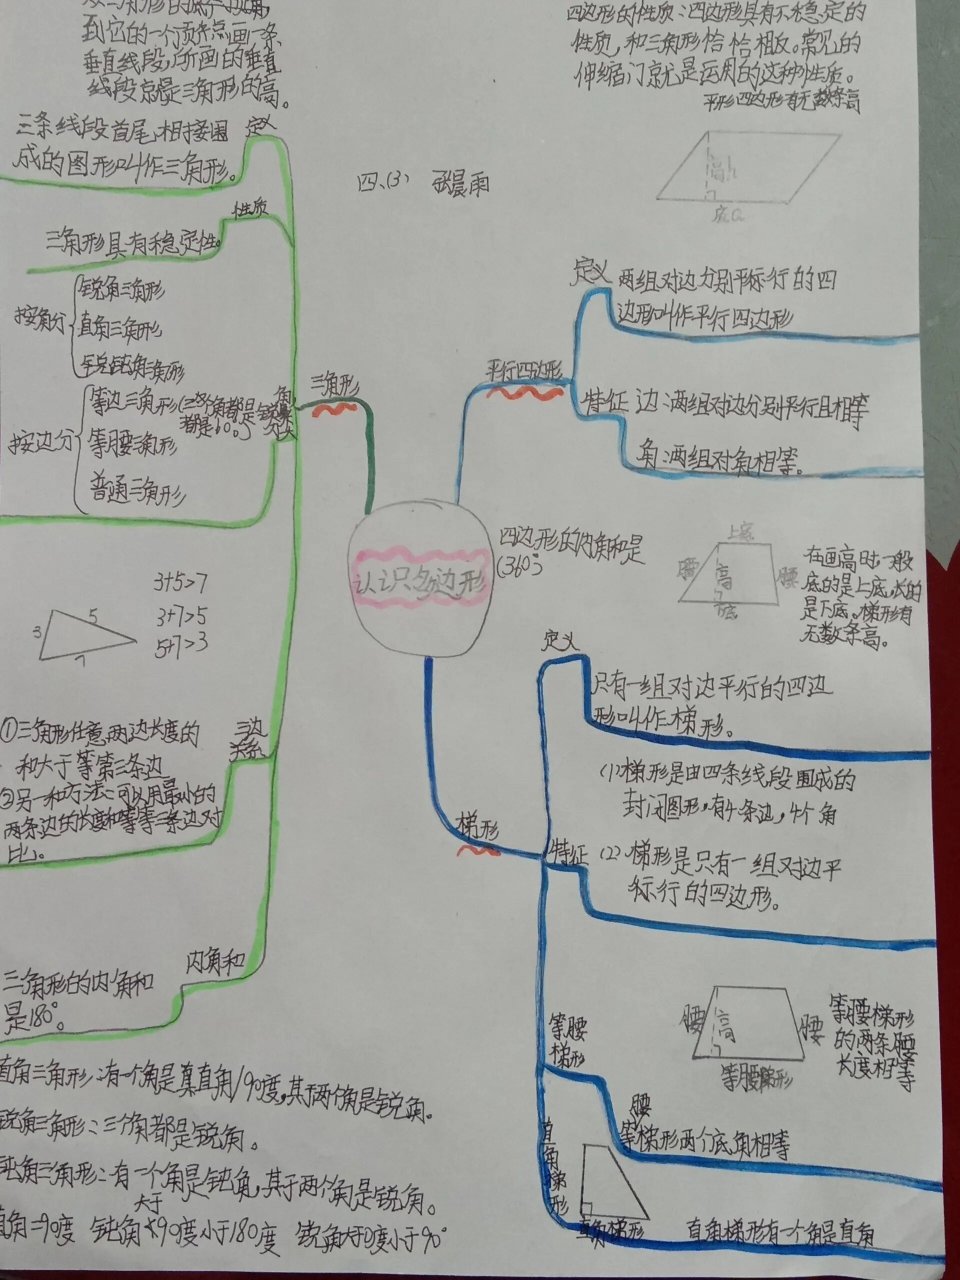 到它的一个顶点画一条
垂直线段,所画的垂直
线段就是三角形的高。
定义
三条线段首尾相接围
成的图形叫作三角形。
性质
三角形具有稳定性。
按角分
锐角三角形
直角三角形
钝角三角形
按边分
等边三角形(三个角都是锐角
都是60°)
等腰三角形
普通三角形
分类
三角形
3+5>7
3+7>5
5+7>3
3
5
7
三边
关系
①三角形任意两边长度的
和大于等第三条边
②另一种方法:可以用最小的
两条边的长度和等等三条边对
比。
内角和
三角形的内角和
是180°。
直角三角形:有一个角是真直角/90度,其于两个角是锐角。
锐角三角形:三个角都是锐角。
钝角三角形:有一个角是钝角,其于两个角是锐角。
直角=90度 钝角大于90度小于180度 锐角大于0度小于90°
四、(3) 张晨雨
认识多边形
四边形的内角和是
(360°)
四边形的性质:四边形具有不稳定的
性质,和三角形恰恰相反。常见的
伸缩门就是运用的这种性质。
平形四边形有无数条高
高h
底a
平行四边形
定义
两组对边分别平行的四
边形叫作平行四边形
特征
边:两组对边分别平行且相等
角:两组对角相等。
上底
腰
高
腰
下底
在画高时,一般
底的是上底,长的
是下底。梯形有
无数条高。
梯形
定义
只有一组对边平行的四边
形叫作梯形。
特征
(1)梯形是由四条线段围成的
封闭图形,有4条边,4个角
(2)梯形是只有一组对边平
行的四边形。
等腰
梯形
腰
高
腰
等腰梯形
等腰梯形
的两条腰
长度相等
等腰梯形两个底角相等
直角梯形
直角梯形
直角梯形有一个角是直角